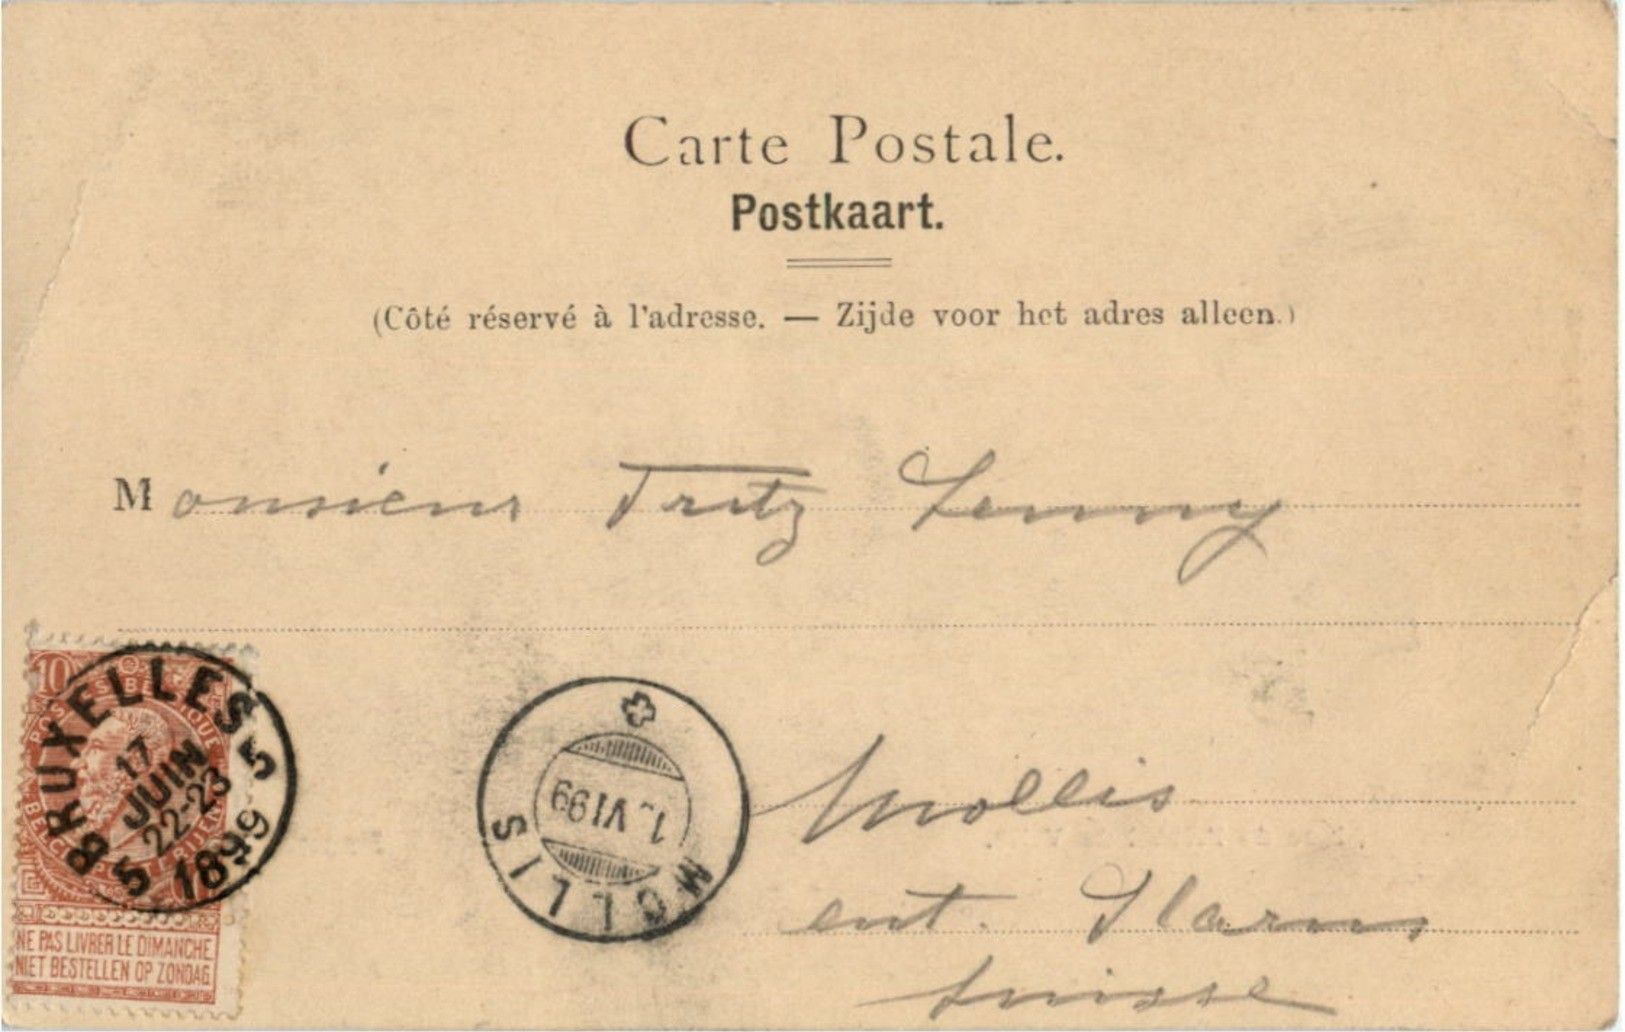 Carte Postale.
Postkaart.
(Côté réservé à l'adresse. — Zijde voor het adres alleen.)
Monsieur Fritz Jenny
Mollis
cnt. Glarus
Suisse
10
BRUXELLES 5
17
JUIN
22-23
5 1899
NE PAS LIVRER LE DIMANCHE
NIET BESTELLEN OP ZONDAG
MOLLIS
VI 99